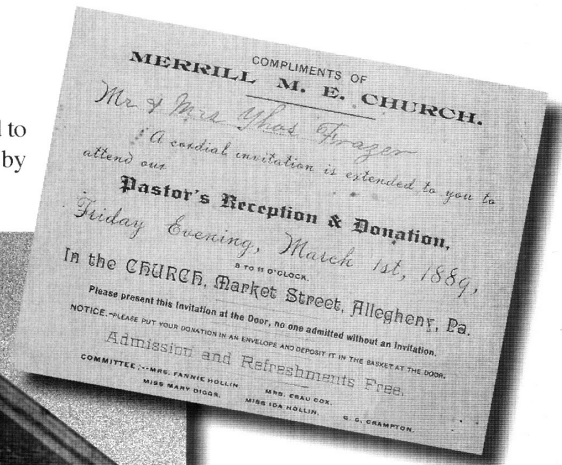 l to
by
COMPLIMENTS OF
MERRILL M. E. CHURCH.
Mr & Mrs Thos Frazer
A cordial invitation is extended to you to
attend our
Pastor's Reception & Donation,
Friday Evening, March 1st, 1889,
8 TO 11 O'CLOCK.
In the CHURCH, Market Street, Allegheny, Pa.
Please present this Invitation at the Door, no one admitted without an Invitation.
NOTICE.-PLEASE PUT YOUR DONATION IN AN ENVELOPE AND DEPOSIT IT IN THE BASKET AT THE DOOR.
Admission and Refreshments Free.
COMMITTEE:--MRS. FANNIE HOLLIN MRS. ESAU COX.
MISS MARY DIGGS. MISS IDA HOLLIN. C. G. CRAMPTON.